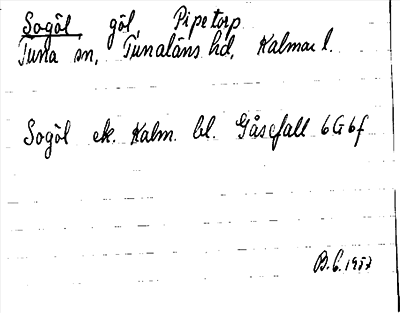 Sogöl göl, Pipetorp
Tuna sn, Tunaläns hd, Kalmar l.
Sogöl ek. Kalm. bl. Gåsefall 6G6f
B.C. 1957